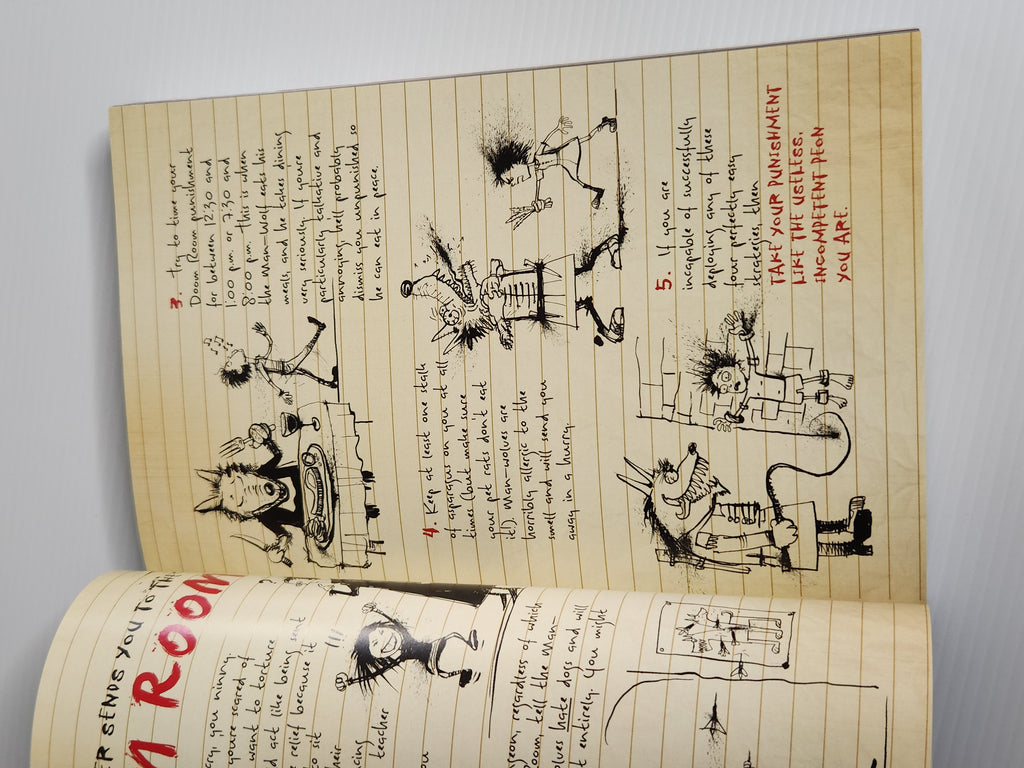 SENDS YOU TO
ROOM
you ninny.
you're scared of
want to torture
act like being sent
relief because it
to sit
teacher
you
regardless of which
tell the man-
hate dogs and will
entirely. (you might
3. Try to time your
Doom Room punishment
for between 12:30 and
1:00 p.m. or 7:30 and
8:00 p.m. this is when
the man-wolf eats his
meals, and he takes dining
very seriously. If you're
particularly talkative and
annoying he'll probably
dismiss you unpunished so
he can eat in peace.
4. Keep at least one stalk
of asparagus on you at all
times (but make sure
your pet rats don't eat
it!). Man-wolves are
horribly allergic to the
smell and will send you
away in a hurry.
5. If you are
incapable of successfully
deploying any of these
four perfectly easy
strategies, then
TAKE YOUR PUNISHMENT
LIKE THE USELESS,
INCOMPETENT PEON
YOU ARE.